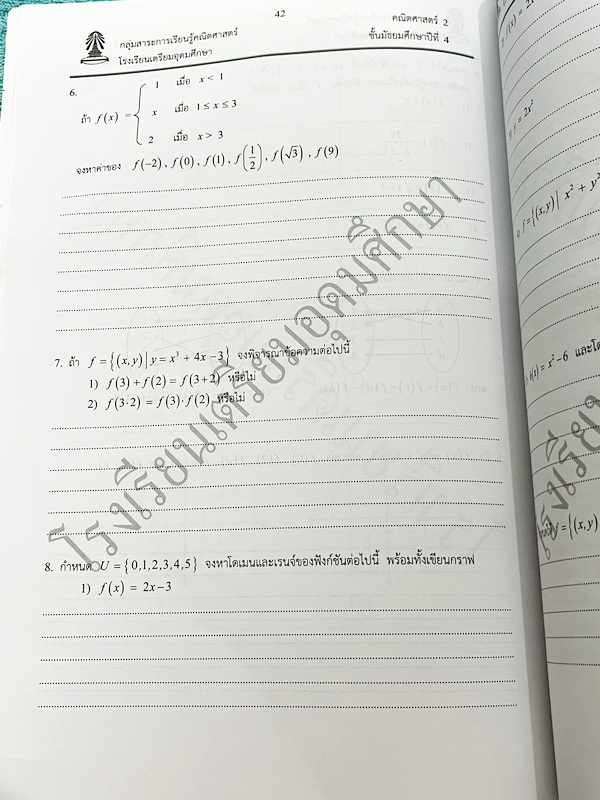 42
กลุ่มสาระการเรียนรู้คณิตศาสตร์
โรงเรียนเตรียมอุดมศึกษา
คณิตศาสตร์ 2
ชั้นมัธยมศึกษาปีที่ 4
6.
1 เมื่อ x < 1
ถ้า f(x) = x เมื่อ 1 ≤ x ≤ 3
2 เมื่อ x > 3
จงหาค่าของ f(−2) , f(0) , f(1) , f(1/2) , f(√3) , f(9)
7. ถ้า f = {(x, y) | y = x³ + 4x − 3} จงพิจารณาข้อความต่อไปนี้
1) f(3) + f(2) = f(3+2) หรือไม่
2) f(3·2) = f(3)· f(2) หรือไม่
8. กำหนด U = {0,1,2,3,4,5} จงหาโดเมนและเรนจ์ของฟังก์ชันต่อไปนี้ พร้อมทั้งเขียนกราฟ
1) f(x) = 2x − 3
โรงเรียนเตรียมอุดมศึกษา
y = 2x²
f = {(x, y) | x² + y²
h(x) = x² − 6 และ
= {(x, y)
โรงเรีย